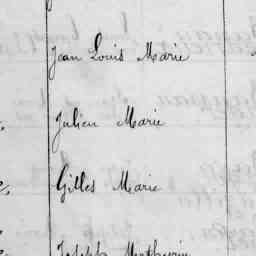 Jean Louis Marie
Julien Marie
Gilles Marie
Joseph Mathurin